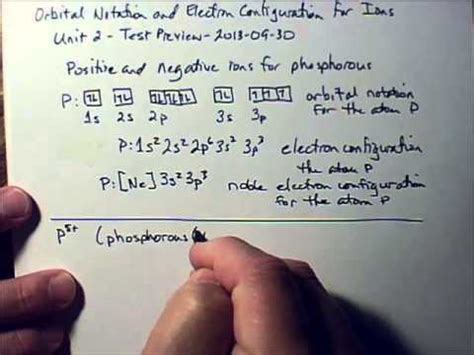 Orbital Notation and Electron Configuration For Ions
Unit 2 - Test Preview - 2013-09-30
Positive and negative ions for phosphorous
P: 1L 1L 1L1L1L 1L 1 1 1 orbital notation
1s 2s 2p 3s 3p for the atom P
P: 1s² 2s² 2p⁶ 3s² 3p³ electron configuration
the atom P
P: [Ne] 3s² 3p³ noble electron configuration
for the atom P
P⁵⁺ (phosphorous